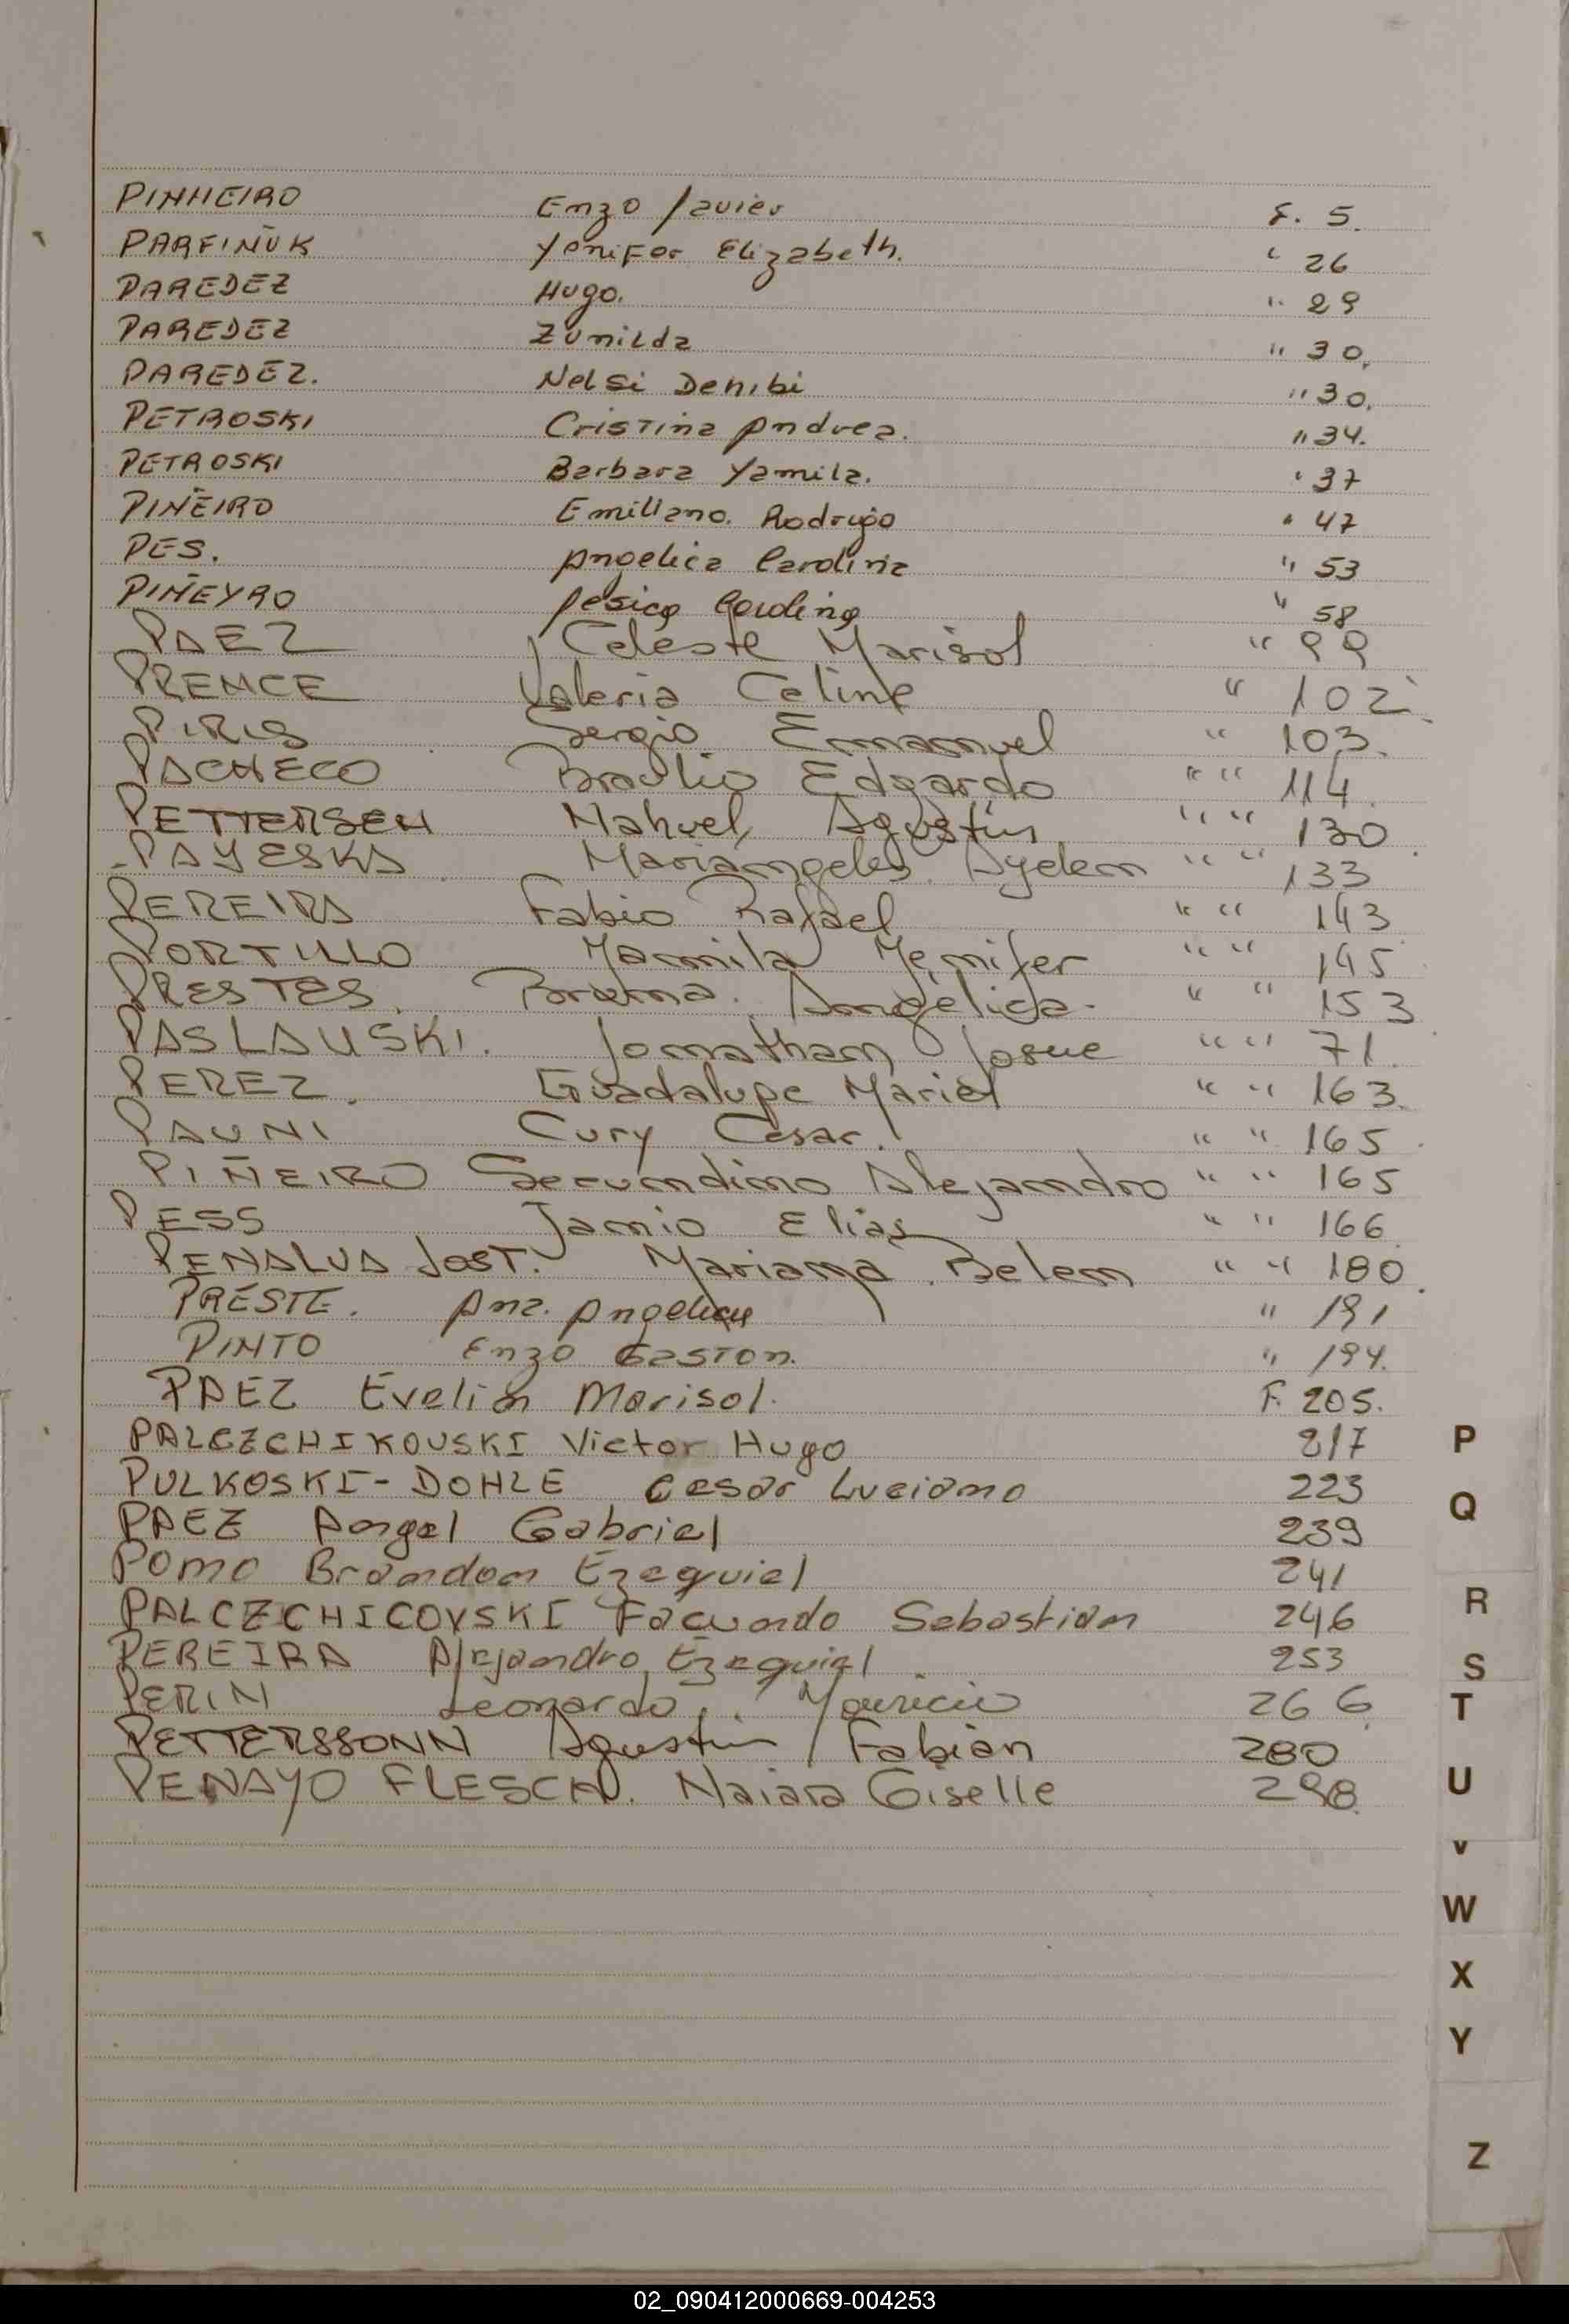 PINHEIRO Enzo Javier F. 5.
PARFINUK Yenifer Elizabeth. " 26
PAREDEZ Hugo. " 29
PAREDEZ Zunilda " 30.
PAREDEZ. Nelsi Denibi " 30.
PETROSKI Cristina Andrea. " 34.
PETROSKI Barbara Yamila. " 37
PIÑEIRO Emiliano. Rodrigo " 47
PES. Angelica Carolina " 53
PIÑEYRO Jesica Carolina " 58
PAEZ Celeste Marisol " 99
PREMCE Valeria Celine " 102
PIRIS Sergio Emmanuel " 103.
PACHECO Braulio Edgardo " " 114.
PETTERSEN Nahuel Agustin " " 130.
PAYESKA. Mariangeles. Ayelen " " 133
PEREIRA Fabio Rafael " " 143
PORTILLO Yamila Yenifer " " 145
PRESTES. Bruna. Angelica. " " 153
PASLAUSKI. Jonathan Josue " " 71.
PEREZ. Guadalupe Mariel " " 163.
PAUNI Cury Cesar. " " 165.
PIÑEIRO Secundino Alejandro " " 165
PESS Jamio Elias " " 166
PENALVA JOST. Mariana. Belem " " 180.
PRESTE. Ana. Angelica " 191
PINTO Enzo Gaston. " 194.
PAEZ Evelin Marisol. F. 205.
PALCZCHIKOUSKI Victor Hugo 217
PULKOSKI-DOHLE Cesar Luciano 223
PAEZ Angel Gabriel 239
POMO Brandon Ezequiel 241
PALCZCHICOVSKI Facundo Sebastian 246
PEREIRA Alejandro Ezequiel. 253
PERIN Leonardo. Mauricio 266
PETTERSSONN Agustin Fabian 280
PENAYO FLESCH. Naiara Giselle 298.
P
Q
R
S
T
U
v
W
X
Y
Z
02_090412000669-004253